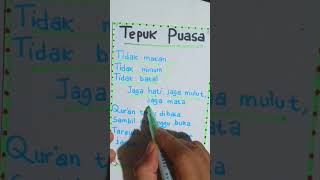 Tepuk Puasa
Tidak makan
Tidak minum
Tidak batal
Jaga hati, jaga mulut,
jaga mata
Qur'an dibaca
Sambil buka